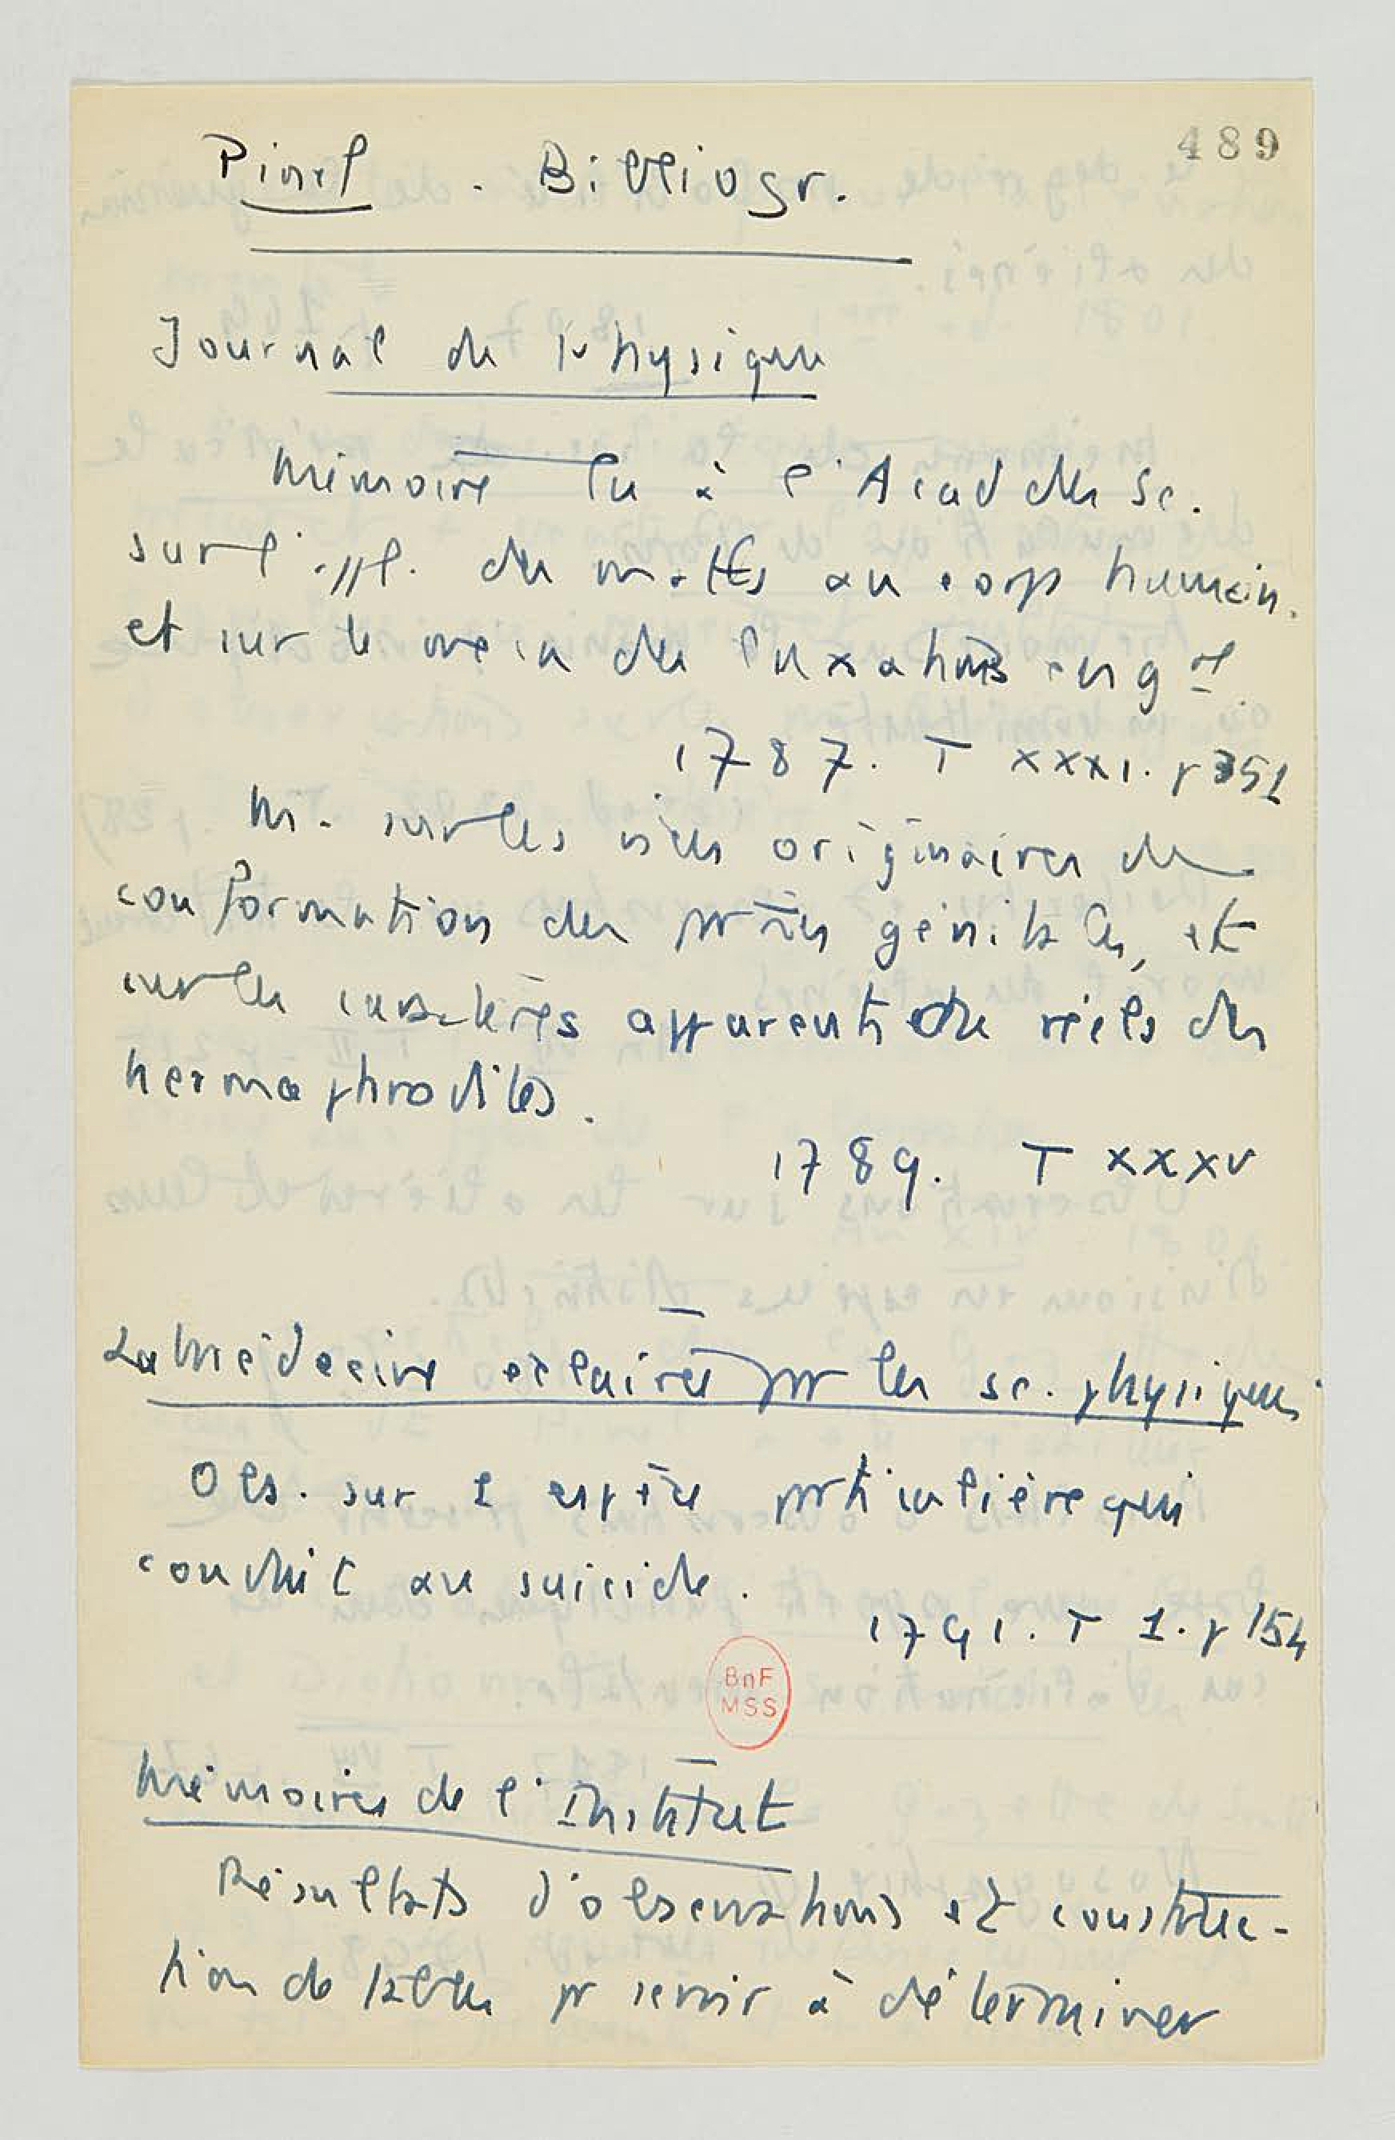 489
Pinel . Bibliogr.
Journal de Physique
Mémoire lu à l'Acad des Sc.
sur l'appl. des maths au corps humain.
et sur le mecan des luxations en gal.
1787. T XXXI. p 351
M. sur les vices originaires de
conformation des parties génitales, et
sur les caractères apparents ou réels des
hermaphrodites.
1789. T XXXV
La Médecine éclairée par les sc. physiques
Obs. sur 1 espèce particulière qui
conduit au suicide.
1791. T 1. p 154
BnF
MSS
Mémoires de l'Institut
Résultats d'observations et construc-
tion de tables pr servir à déterminer